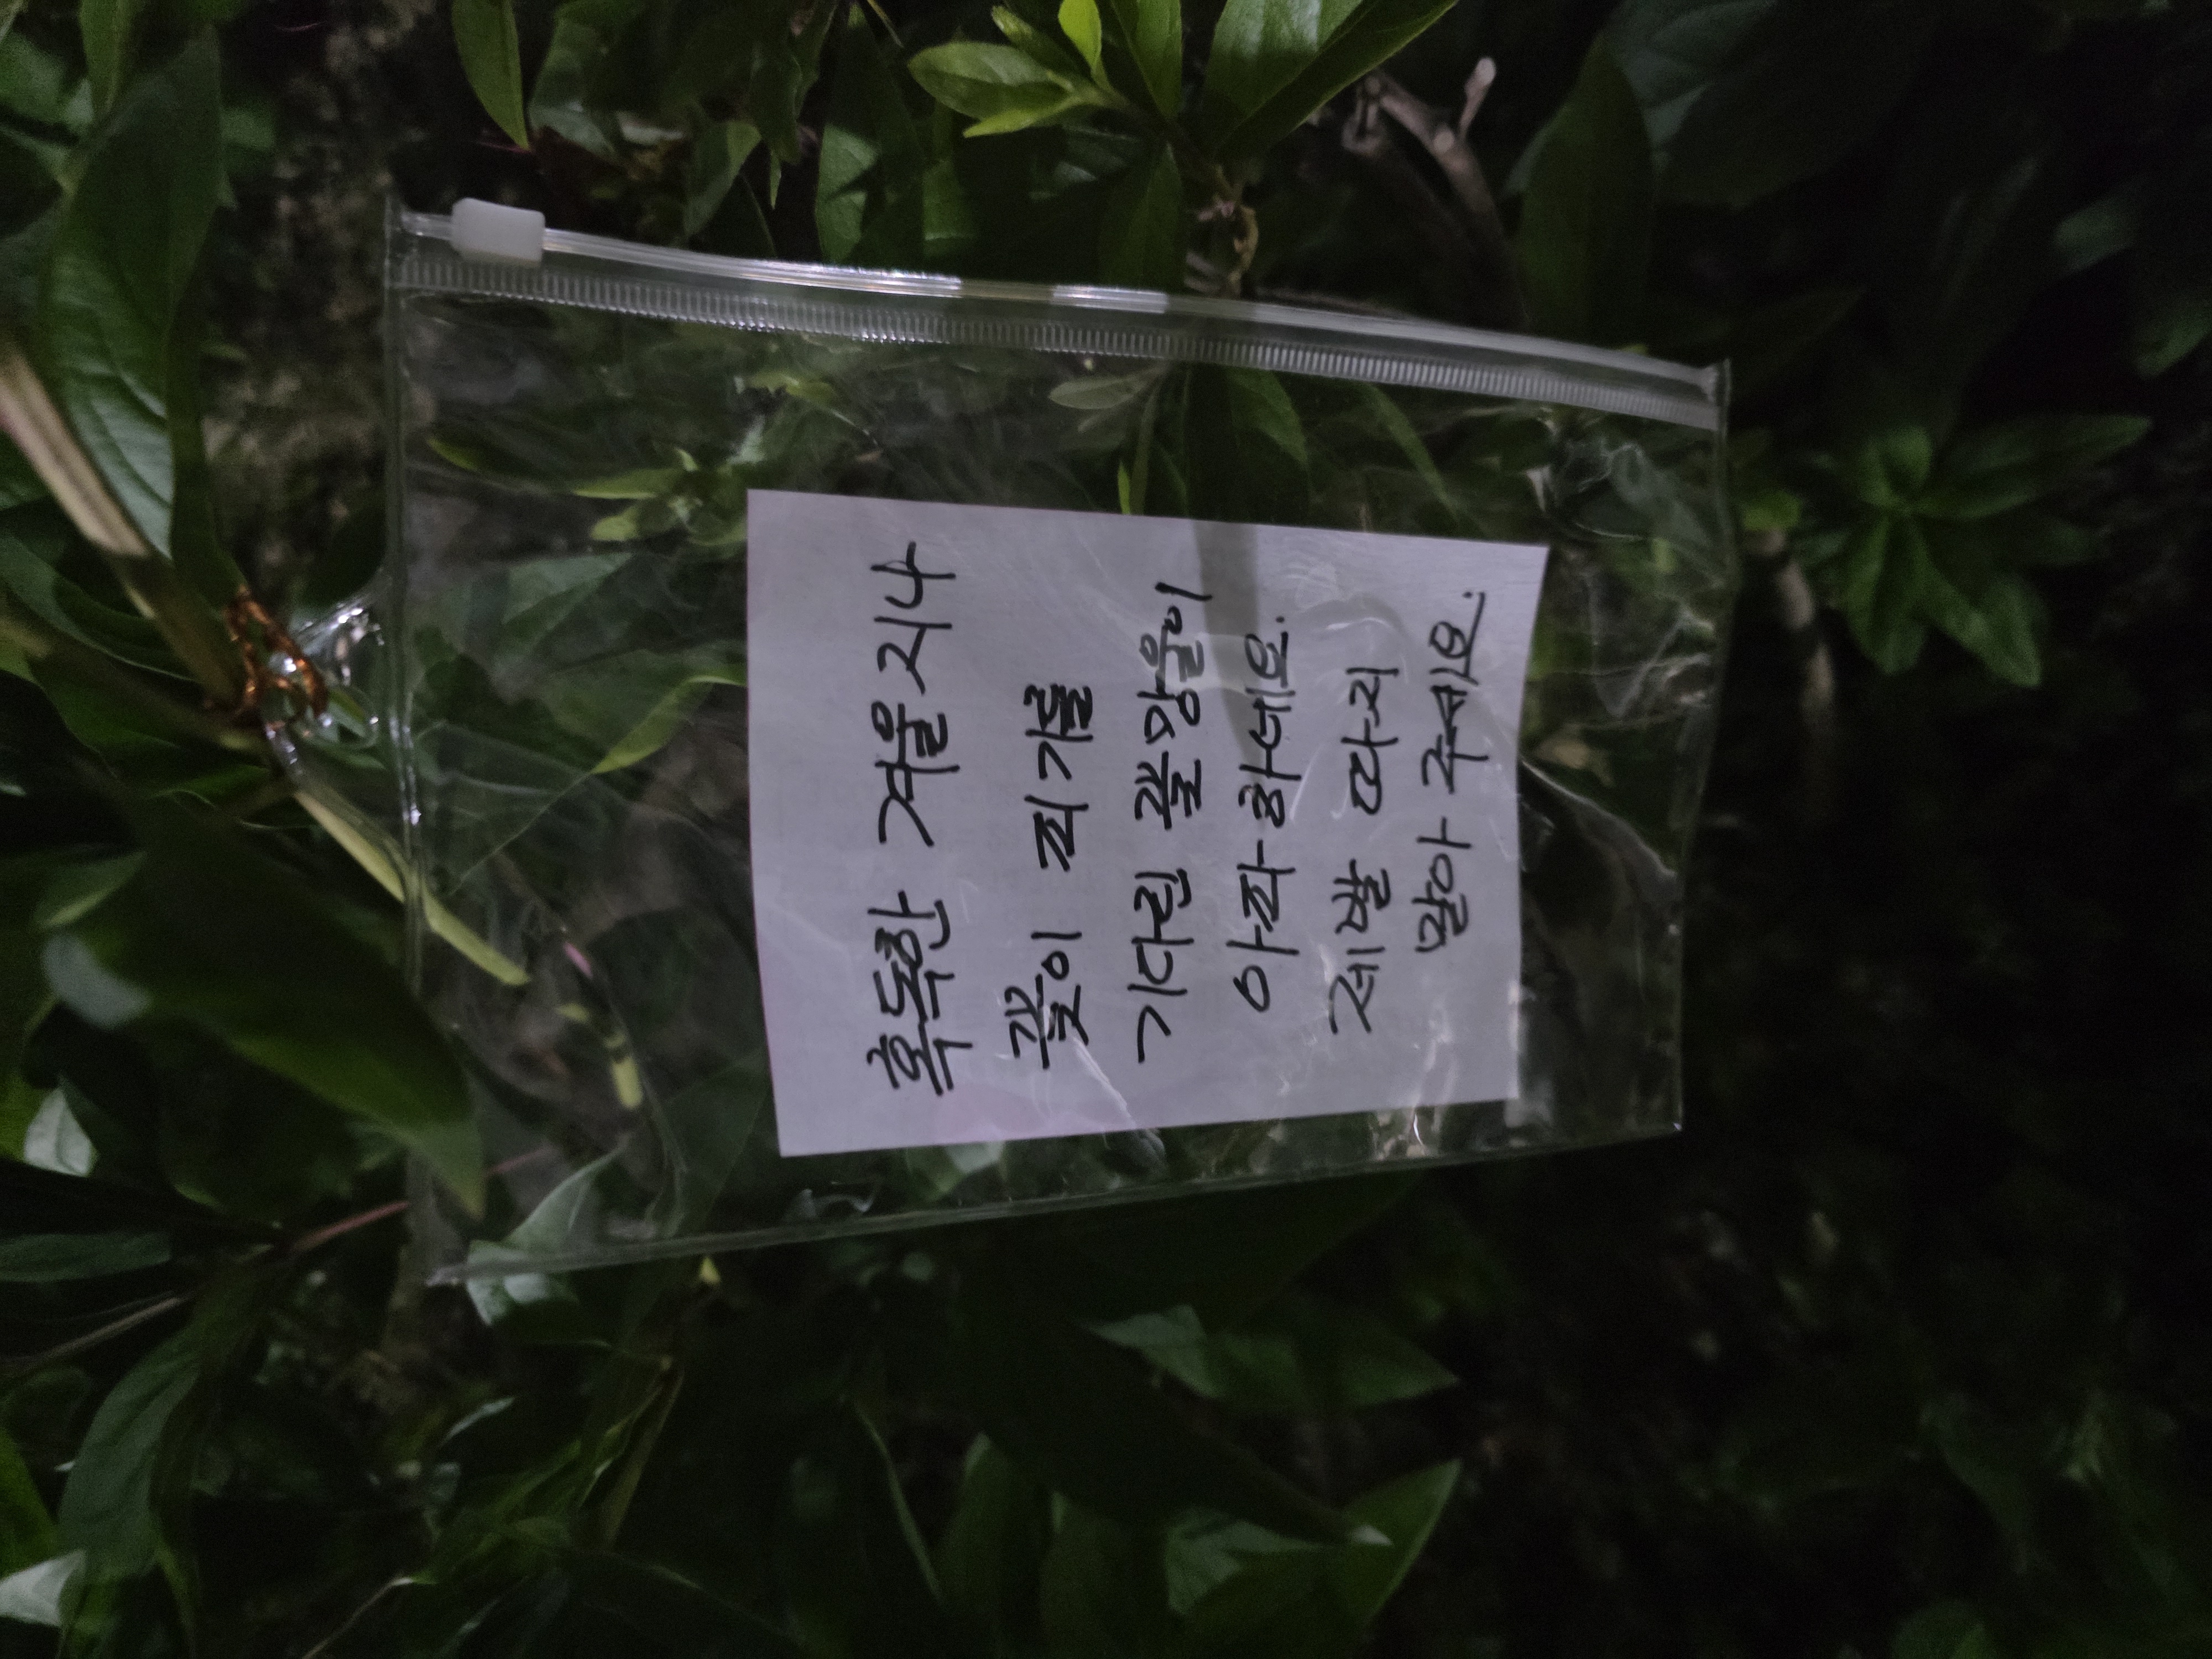 혹독한 겨울 지나
꽃이 피기를
기다린 꽃망울이
아파하네요.
제발 따지
말아 주세요.